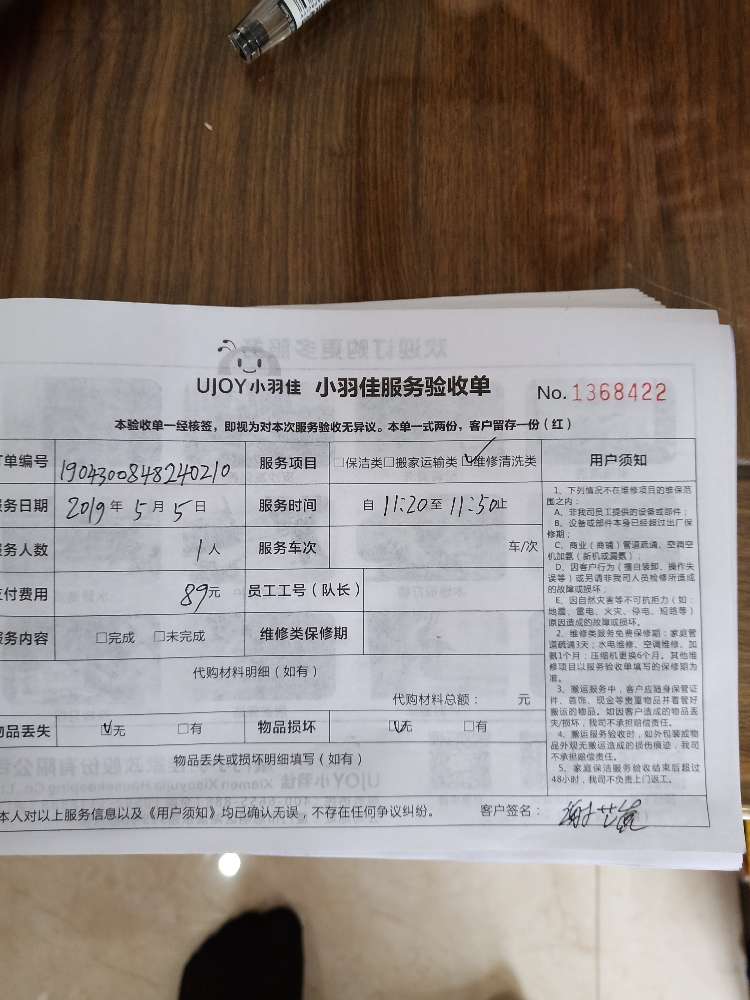 UJOY小羽佳 小羽佳服务验收单 No.1368422
本验收单一经核签，即视为对本次服务验收无异议。本单一式两份，客户留存一份（红）
单编号 1904300848240210 服务项目 □保洁类□搬家运输类☑维修清洗类 用户须知
务日期 2019年5月5日 服务时间 自11:20至11:50止
务人数 1人 服务车次 车/次
付费用 89元 员工工号（队长）
务内容 □完成 □未完成 维修类保修期
代购材料明细（如有）
代购材料总额： 元
品丢失 ☑无 □有 物品损坏 ☑无 □有
物品丢失或损坏明细填写（如有）
本人对以上服务信息以及《用户须知》均已确认无误，不存在任何争议纠纷。 客户签名：
1、下列情况不在维修项目的维保范
围之内：
A、非我司员工提供的设备或部件；
B、设备或部件本身已经超过出厂保
修期；
C、商业（商铺）管道疏通、空调空
机加氨（新机或漏氨）；
D、因客户行为（擅自装卸、操作失
误等）或另请非我司人员检修所造成
的故障或损坏；
E、因自然灾害等不可抗拒力（如：
地震、雷电、火灾、停电、短路等）
原因造成的故障或损坏。
2、维修类服务免费保修期：家庭管
道疏通3天；水电维修、空调维修、加
氨1个月；压缩机更换6个月。其他维
修项目以服务验收单填写的保修期为
准。
3、搬运服务中，客户应随身保管证
件、首饰、现金等贵重物品并看管好
搬运的物品。如因客户造成的物品丢
失/损坏，我司不承担赔偿责任。
4、搬运服务验收时，如外包装或物
品外观无搬运造成的损伤痕迹，我司
不承担赔偿责任。
5、家庭保洁服务验收结束后超过
48小时，我司不负责上门返工。